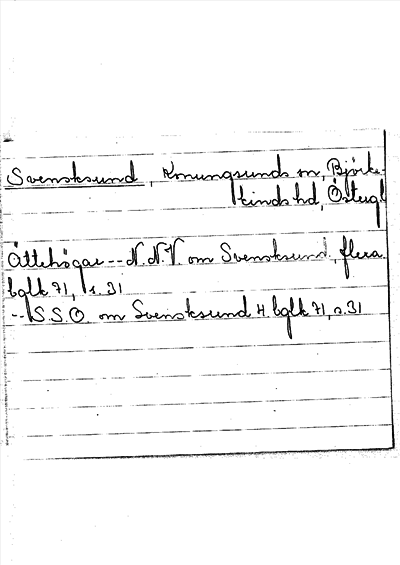 Svensksund, Konungsunds sn, Björke-
kinds hd, Östergl
Ättehögar -- N.N.V om Svensksund, flera
bglk 71, s. 31
-- S.S.O. om Svensksund 4. bglk 71, s. 31